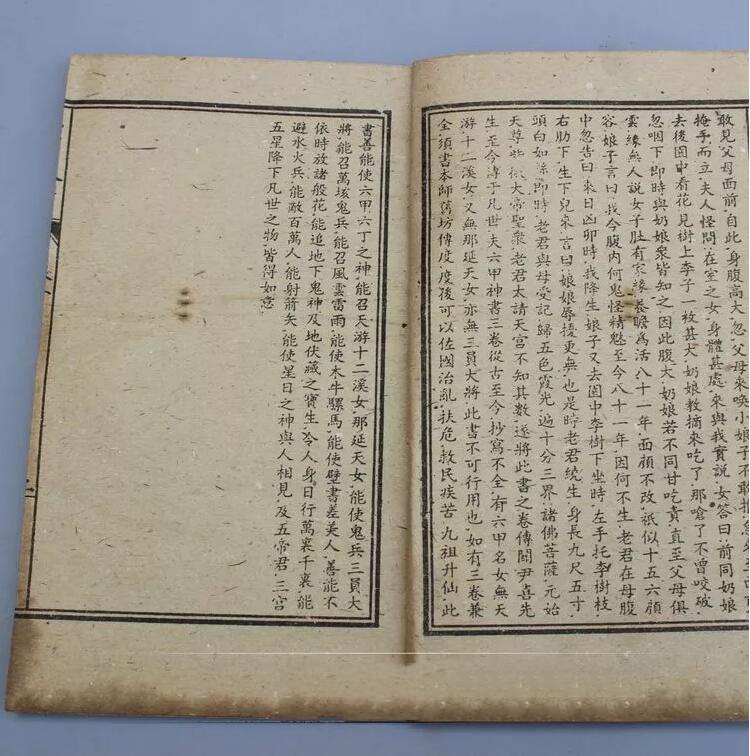 敢見父母面前.自此.身腹高大.忽.父母來喚小娘子.不敢
掩手而立.夫人怪問.在室之女.身體甚處.來與我實說.女答曰.前同奶娘
去後園中看花.見樹上李子一枚甚大.奶娘教摘來吃了.那嗆了不曾咬破.
忽咽下.即時與奶娘衆皆知之.因此腹大.奶娘若不同甘吃責.直至父母俱
雲.緣無人說女子肚有家緣.長瞻為活八十一年.面顏不改.祇似十五六顏
容.娘子言曰.我今腹内何鬼怪精魅.至今八十一年.因何不生.老君在母腹
中忽告曰.來日凶卯時.我降生.娘子又去園中李樹下坐時.左手托李樹枝.
右肋下.生下兒來.言曰.娘娘辱擾更無也.是時老君繞生.身長九尺五寸.
頭白如.即時.老君與母受記歸五色霞光.遍十分三界諸佛菩薩.元始
天尊.些微大帝聖衆.老君太請天宮不知其數.遂將此書之卷傳關尹喜先
生.至今淳于凡世.夫六甲神書三卷.從古至今.抄寫不全.有六甲名女.無天
游十二溪女.又無那延天女.亦無三員大將.此書不可行用也.如有三卷兼
全.須書本師舊坊傳度.度後可以佐國治亂.扶危.救民疾苦.九祖升仙.此
書善能使六甲六丁之神.能召天游十二溪女.那延天女.能使鬼兵三員大
將.能召萬垓鬼兵.能召風雲雷雨.能使木牛騾馬.能使壁書差美人.善能不
依時放諸般花.能追地下鬼神及地伏藏之寶.生令人身日行萬裏千裏.能
避水火兵.能敵百萬人.能射箭矢.能使星日之神與人相見.及五帝君.三宮
五星降下凡世之物.皆得如意.